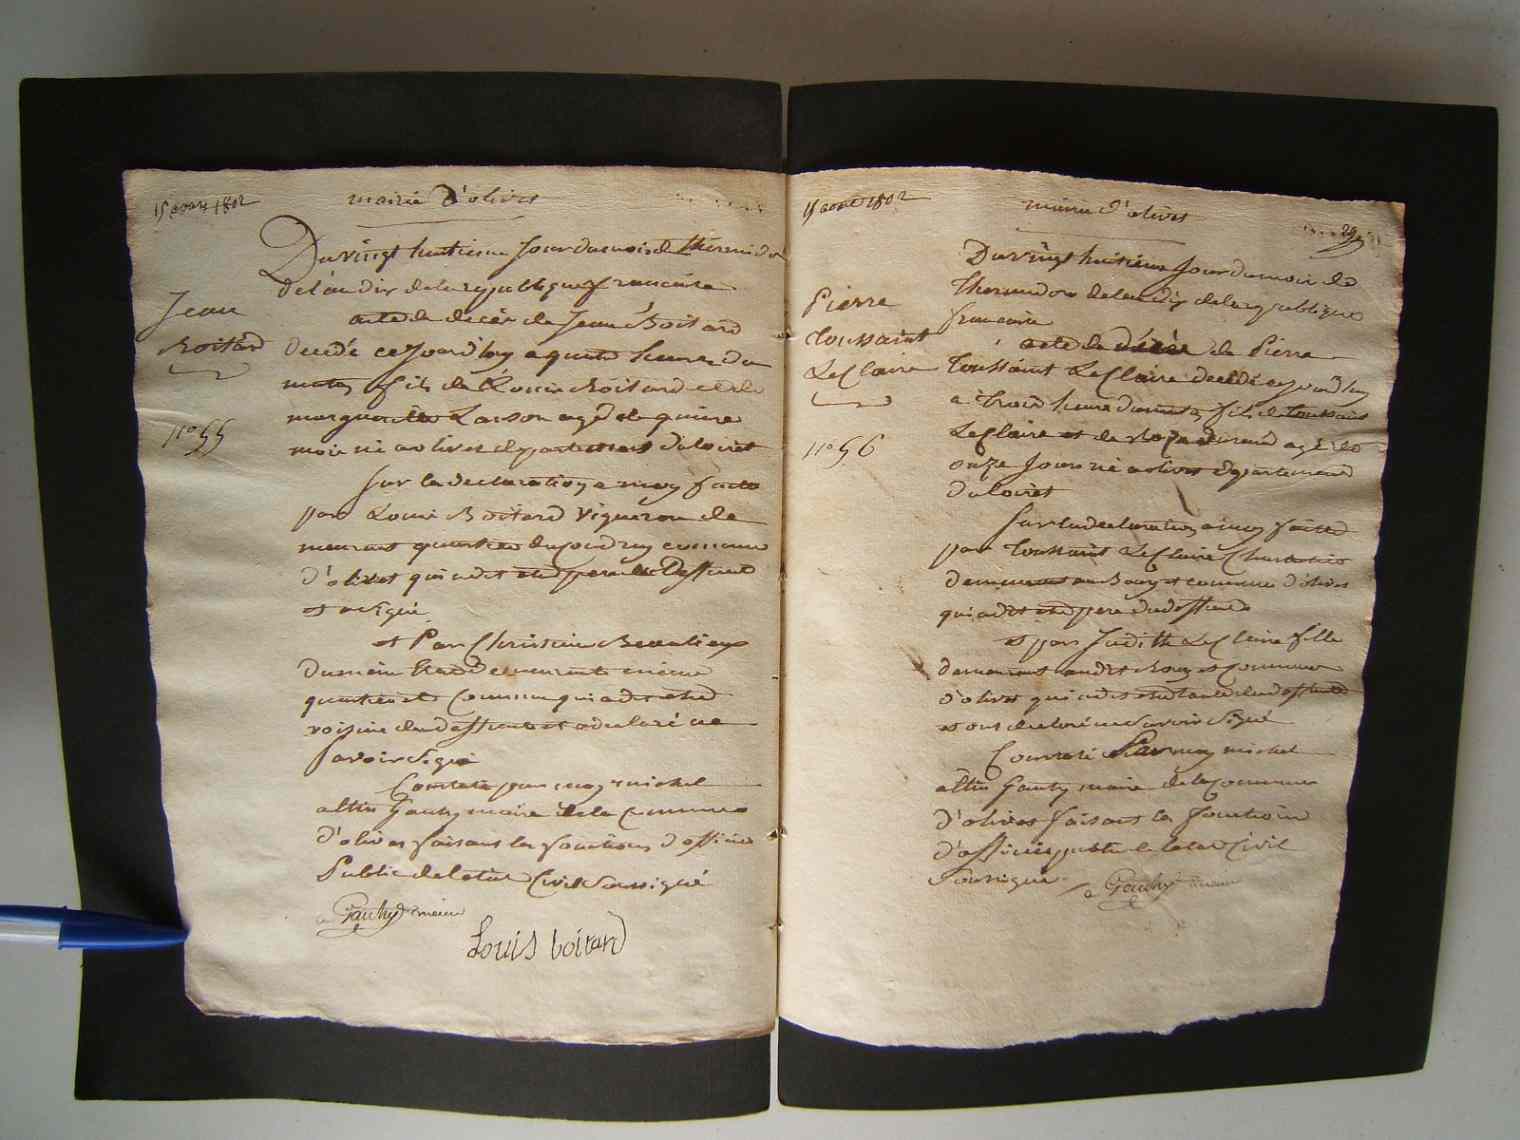 15 aoust 1802
mairie d'olivet
Du vingt huitieme Jour du mois de thermidor
de l'an dix de la republique francaise
Jean
Boitard
n° 55
acte de decès de Jean Boitard
decedé ce Jourd'huy a quatre heures du
matin fils de Louis Boitard et de
marguerite Larson agé de quinze
mois né a olivet departement du loiret
Sur la declaration a moy faite
par Louis Boitard Vigneron de
meurant quartier du commune
d'olivet qui a dit etre pere du Deffunt
et a Signé
et Par Beaulieux
demeurant meme
quartier et Commune qui a dit etre
voisin du deffunt et a declaré ne
savoir Signé
Constaté par moy michel
altin Gauhy maire de la Commune
d'olivet faisant les fonctions d'officier
Public de l'etat Civil Soussigné
Gauhy maire
Louis boitard
15 aoust 1802
mairie d'olivet
29
Du vingt huitieme Jour du mois de
Thermidor de l'an dix de la republique
francaise
Pierre
Toussaint
LeClaire
n° 56
acte de décès de Pierre
Toussaint LeClaire decedé ce jourd'huy
a Trois heure du matin fils de Toussaint
LeClaire et de Roze durand agé de
onze Jours né a olivet departement
du loiret
Sur la declaration a moy faitte
par Toussaint LeClaire
demeurant au Bourg et commune d'olivet
qui a dit etre pere du deffunt
et par Judith LeClaire fille
demeurant audit Bourg et Commune
d'olivet qui a dit etre tante du deffunt
et ont declaré ne Savoir Signé
Constaté Par moy michel
altin Gauhy maire de la Commune
d'olivet faisant les fonctions
d'officier public de l'etat Civil
Soussigné
Gauhy maire